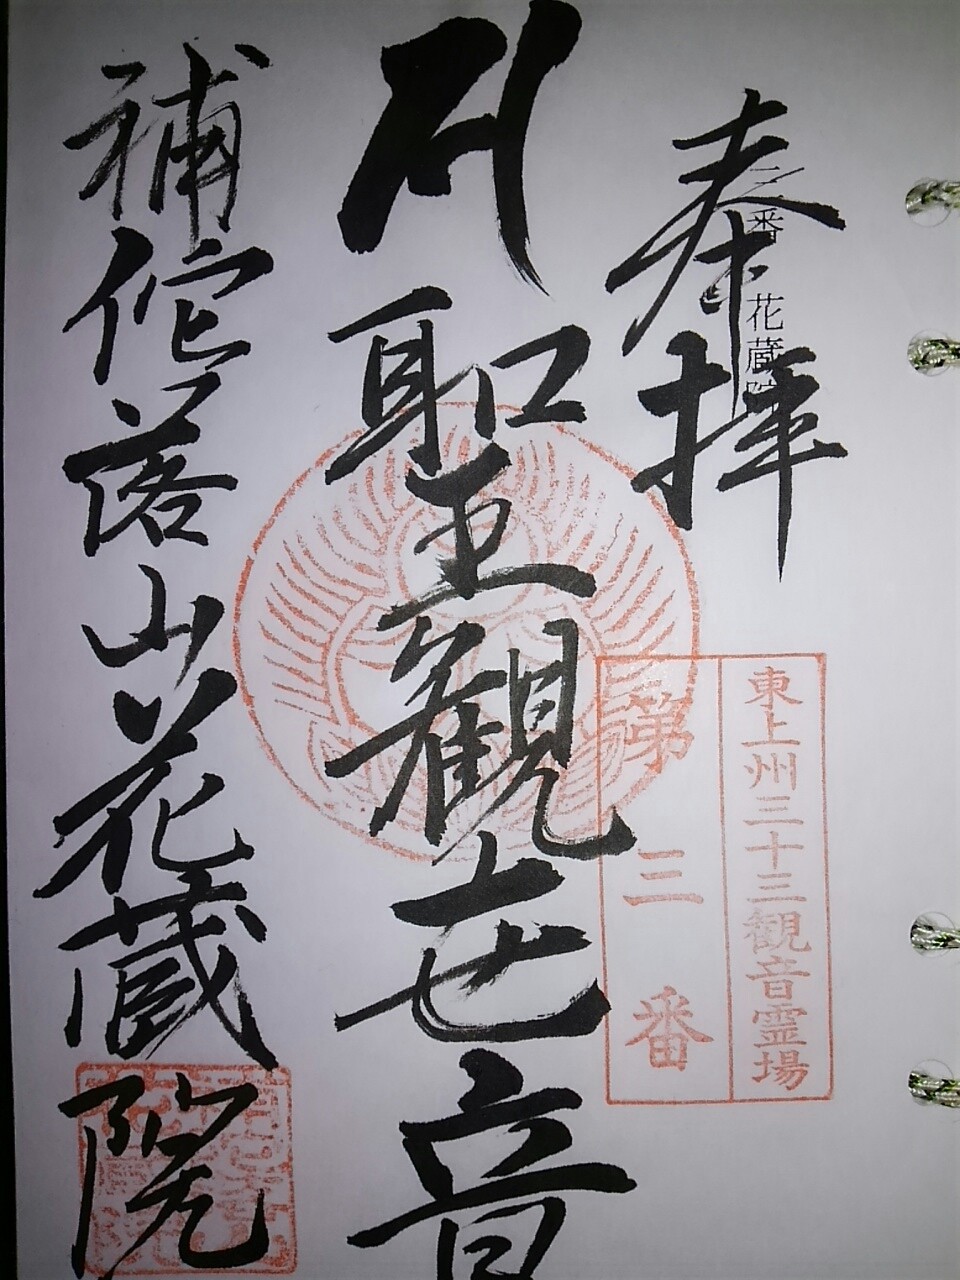 奉拝
三番 花蔵院
東上州三十三観音霊場
第三番
聖観世音
補陀落山花蔵院